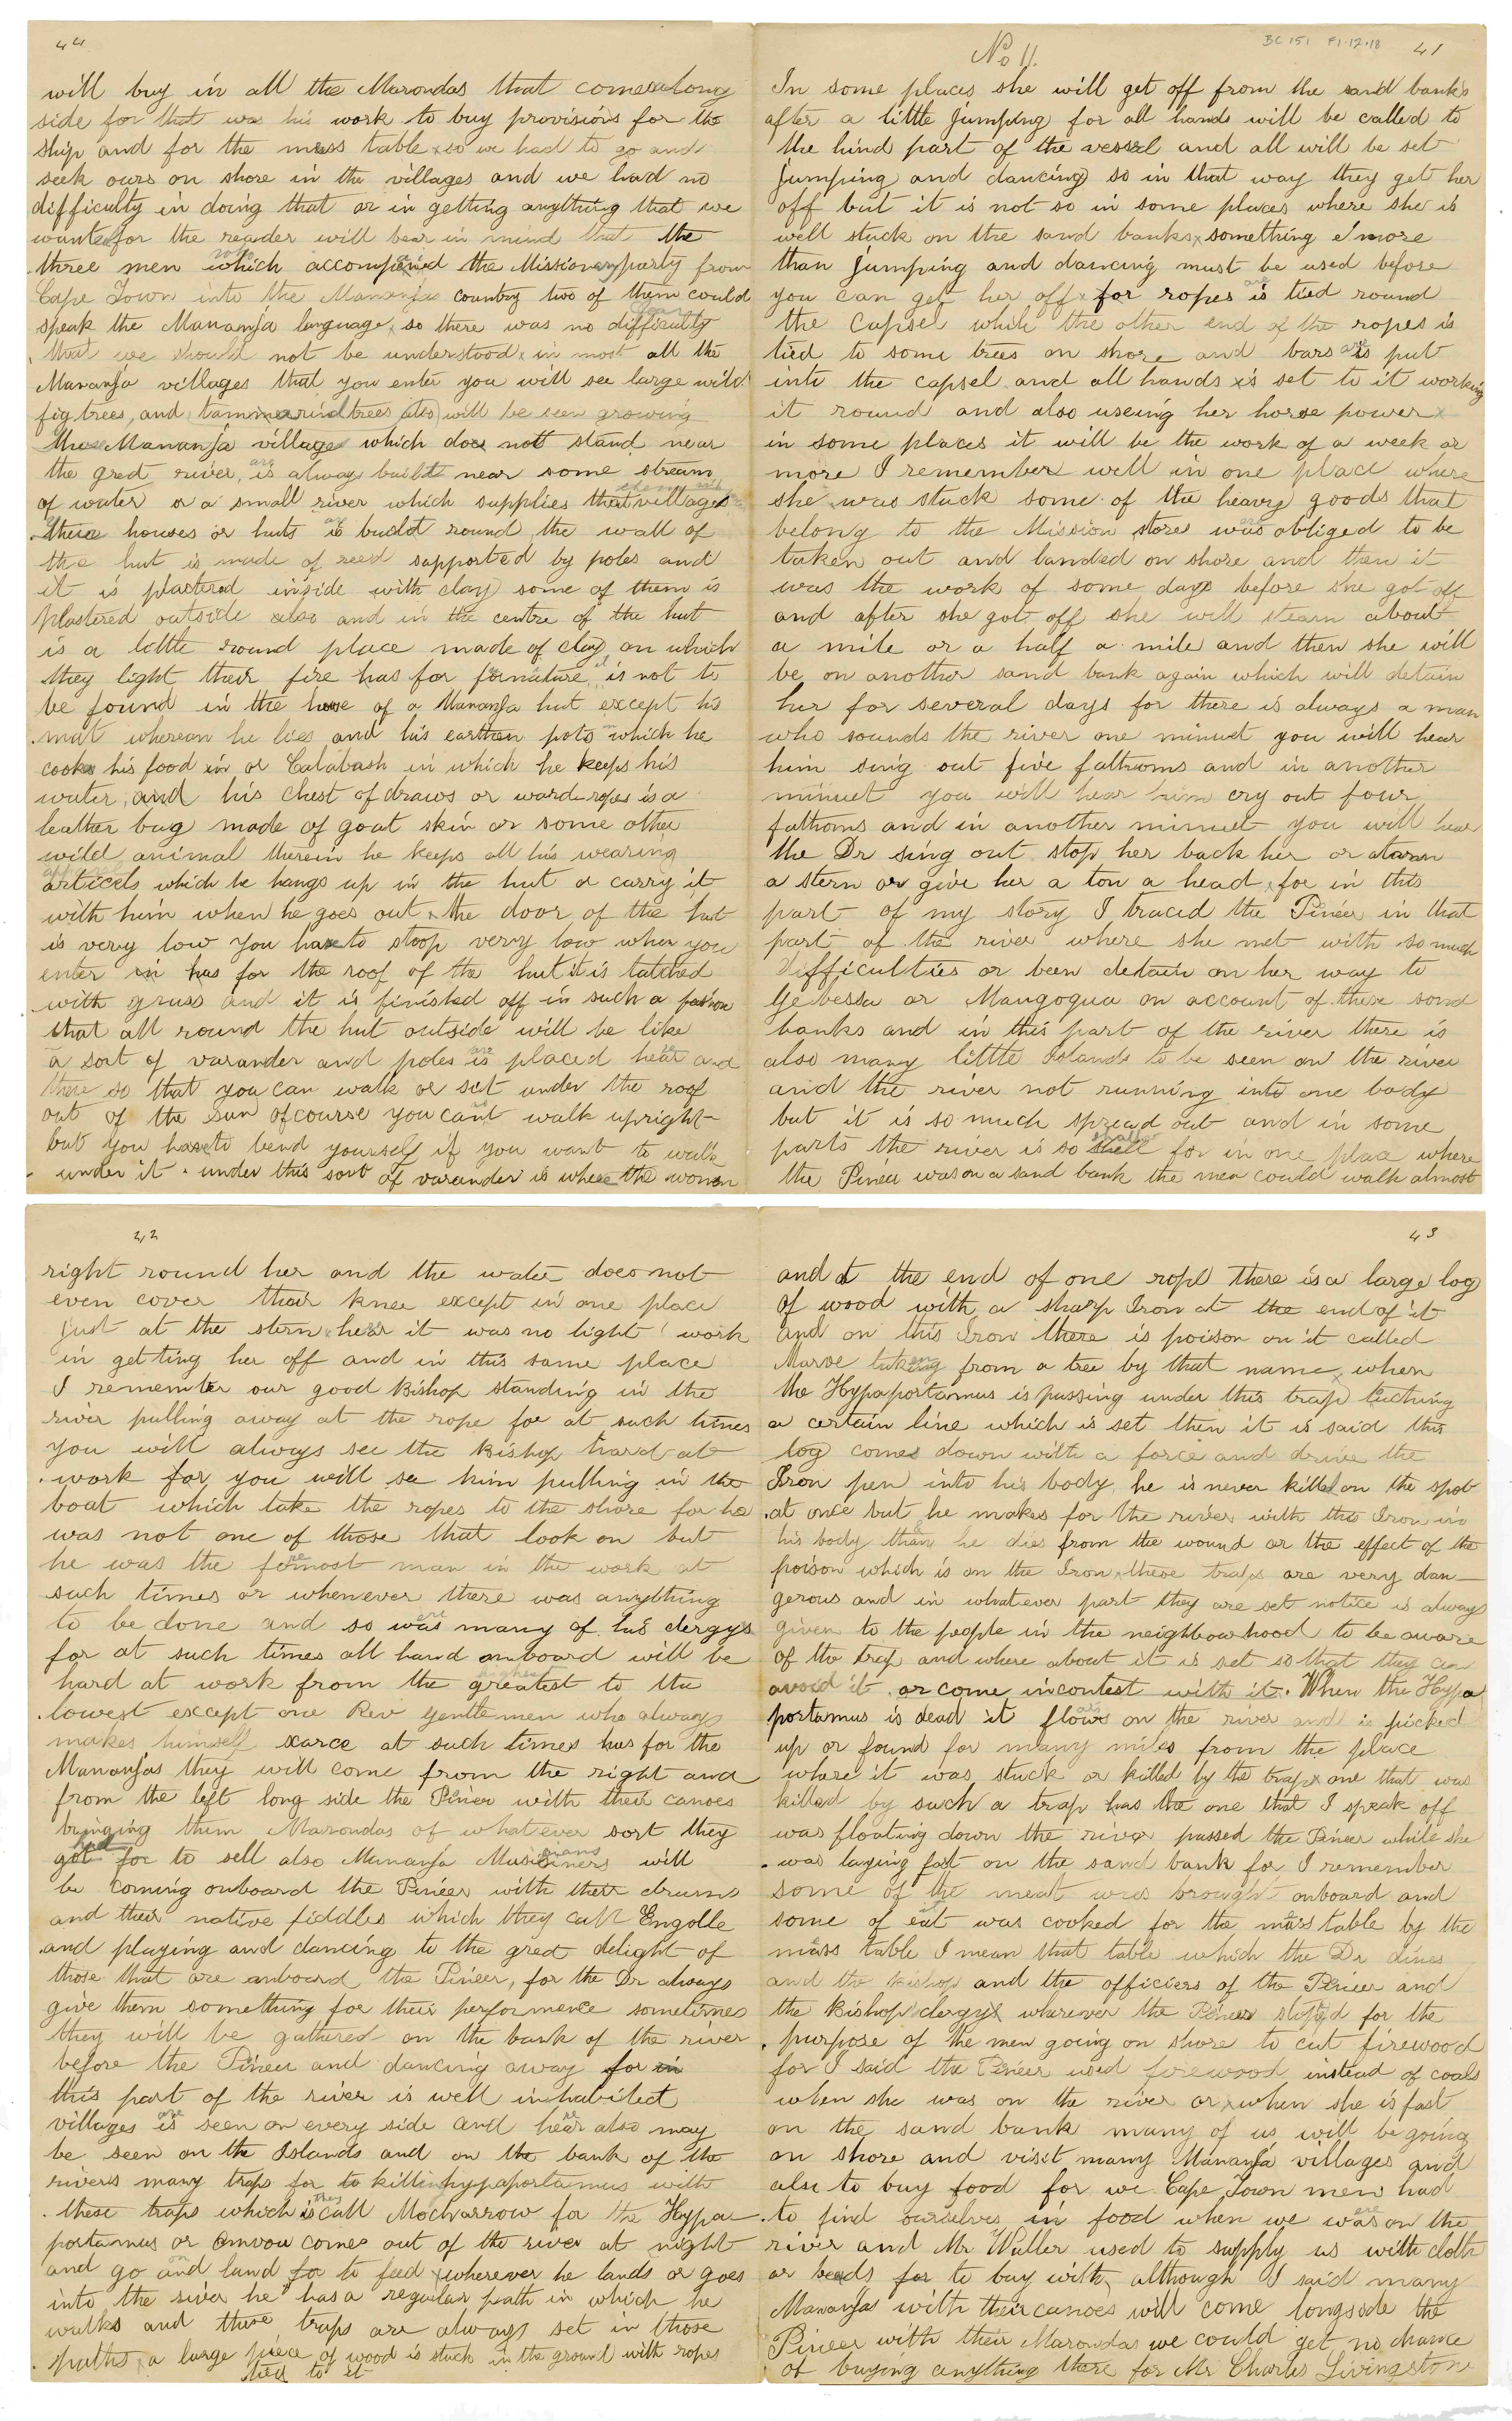 No 11.
BC 151 F1.12.18
41
In some places she will get off from the sand banks
after a little Jumping for all hands will be called to
the hind part of the vessel and all will be set
Jumping and dancing so in that way they get her
off but it is not so in some places where she is
well stuck on the sand banks x something e'more
than Jumping and dancing must be used before
you can get her off x for ropes is are tied round
the Capsel while the other end of the ropes is
tied to some trees on shore and bars is are put
into the capsel and all hands is set to it working
it round and also useing her horse power x
in some places it will be the work of a week or
more I remember well in one place where
she was stuck some of the heavy goods that
belong to the Mission stores was obliged to be
taken out and landed on shore and then it
was the work of some days before she got off
and after she got off she will steam about
a mile or a half a mile and then she will
be on another sand bank again which will detain
her for several days for there is always a man
who sounds the river one minuet you will hear
him sing out five fathoms and in another
minuet you will hear him cry out four
fathoms and in another minuet you will hear
the Dr sing out stop her back her or atarn
a stern or give her a ton a head x for in this
part of my story I traced the Pineer in that
part of the river where she met with so much
difficulties or been detain on her way to
Gebessa or Mangogua on account of these sand
banks and in this part of the river there is
also many little Islands to be seen on the river
and the river not running into one body
but it is so much spread out and in some
parts the river is so shall shallow for in one place where
the Pineer was on a sand bank the men could walk almost
42
right round her and the water does not
even cover their knee except in one place
just at the stern x hear it was no light work
in getting her off and in this same place
I remember our good Bishop standing in the
river pulling away at the rope for at such times
you will always see the Bishop hard at
work for you will see him pulling in the
boat which take the ropes to the shore for he
was not one of those that look on but
he was the formost man in the work at
such times or whenever there was anything
to be done and so was were many of his clergys
for at such times all hand onboard will be
hard at work from the greatest highest to the
lowest except one Rev gentlemen who always
makes himself scarce at such times has for the
Mananjas they will come from the right and
from the left long side the Pineer with their canoes
bringing them Marondas of whatever sort they
got had for to sell also Mananja Musiciners will
be coming onboard the Pineer with their drums
and their native fiddles which they call Engolle
and playing and dancing to the gret delight of
those that are onboard the Pineer, for the Dr always
give them something for their performence sometimes
they will be gathered on the bank of the river
before the Pineer and dancing away for in
this part of the river is well inhabitect
villages is are seen on every side and hear also may
be seen on the Islands and on the bank of the
rivers many traps for to killin hypaportamus with
these traps which is they call Mocharrow for the Hypa
portamus or Omvou comes out of the river at night
and go and on land for to feed x wherever he lands or goes
into the river he has a regular path in which he
walks and these traps are always set in those
paths x a large piece of wood is stuck in the ground with ropes
tied to it
43
and at the end of one rope there is a large log
of wood with a sharp Iron at the end of it
and on this Iron there is poison on it called
Marve taking from a tree by that name x when
the Hypaportamus is passing under this trap tuching
a certain line which is set then it is said this
log comes down with a force and drive the
Iron pen into his body he is never killed on the spot
at once but he makes for the river with this Iron in
his body than he dies from the wound or the effect of the
poison which is on the Iron x these traps are very dan-
gerous and in whatever part they are set notice is always
given to the people in the neighbourhood to be aware
of the trap and where about it is set so that they can
avoid it or come incontest with it. When the Hypa
portamus is dead it flows on the river and is picked
up or found for many miles from the place
where it was stuck or killed by the trap x one that was
killed by such a trap has the one that I speak off
was floating down the river passed the Pineer while she
was laying fast on the sand bank for I remember
some of the meat was brought onboard and
some of eat was cooked for the mess table by the
mess table I mean that table which the Dr dines
and the Bishop and the officiers of the Pineer and
the Bishop clergys wherever the Pineer stoped for the
purpose of the men going on shore to cut firewood
for I said the Pineer used firewood instead of coals
when she was on the river or x when she is fast
on the sand bank many of us will be going
on shore and visit many Mananja villages and
also to buy food for we Cape Town men had
to find ourselves in food when we was are on the
river and Mr Waller used to supply us with cloth
or beads for to buy with, although I said many
Mananjas with their canoes will come longside the
Pineer with their Marondas we could get no chance
of buying anything there for Mr Charles Livingstone
44
will buy in all the Marondas that comes along
side for that was his work to buy provisions for the
ship and for the mess table x so we had to go and
seek ours on shore in the villages and we had no
difficulty in doing that or in getting anything that we
wanted for the reader will bear in mind that the
three men which accompanied the Missionary party from
Cape Town into the Mananjas country two of them could
speak the Mananja language, so there was no difficulty
that we should not be understood x in most all the
Mananja villages that you enter you will see large wild
fig trees, and tammarind trees also will be seen growing
the Mananja villages which does nott stand near
the gret river, is are always buildt near some stream
of water or a small river which supplies that villages
these houses or huts is are buildt round the wall of
the hut is made of reed supported by poles and
it is plastered inside with clay some of them is
plastered outside also and in the centre of the hut
is a little round place made of clay on which
they light their fire has for furnature it is not to
be found in the house of a Mananja hut except his
mat whereon he lies and his earthen pots in which he
cooks his food in or Calabash in which he keeps his
water, and his chest of draws or warde-ropes is a
leather bag made of goat skin or some other
wild animal therein he keeps all his wearing
articels which he hangs up in the hut or carry it
with him when he goes out x the door of the hut
is very low you have to stoop very low when you
enter in has for the roof of the hut it is tatched
with grass and it is finished off in such a fashion
that all round the hut outside will be like
a sort of varander and poles is are placed hear and
there so that you can walk or set under the roof
out of the sun ofcourse you cant walk upright
but you have to bend yourself if you want to walk
under it . under this sort of varander is where the women